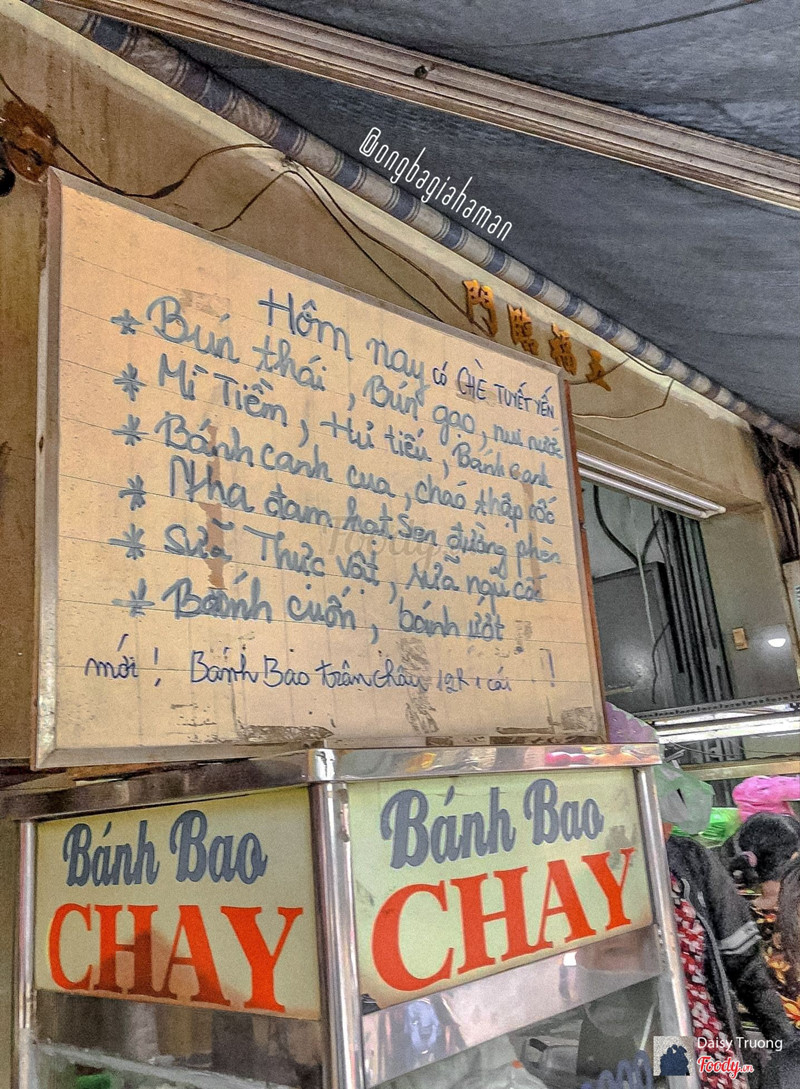 @ongbagiahaman
門臨福五
Hôm nay có CHÈ TUYẾT YẾN
* Bún thái, Bún gạo, nui nước
* Mì Tiềm, Hủ tiếu, Bánh canh
* Bánh canh cua, cháo thập cốc
* Nha đam hạt sen đường phèn
* Sữa Thực vật, sữa ngũ cốc
* Bánh cuốn, bánh ướt
mới! Bánh Bao trân châu 12k 1 cái !
Foody.vn
Bánh Bao
CHAY
Bánh Bao
CHAY
Daisy Truong
Foody.vn